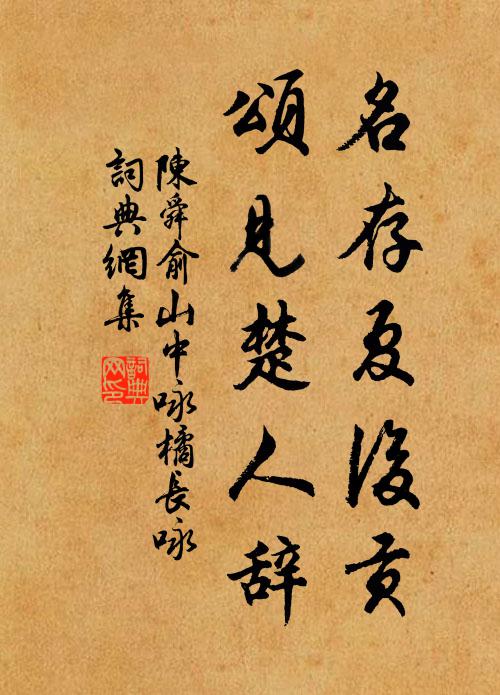 名存夏後貢
頌見楚人辞
陳舜俞山中咏橘長咏
詞典網集
詞典
网印